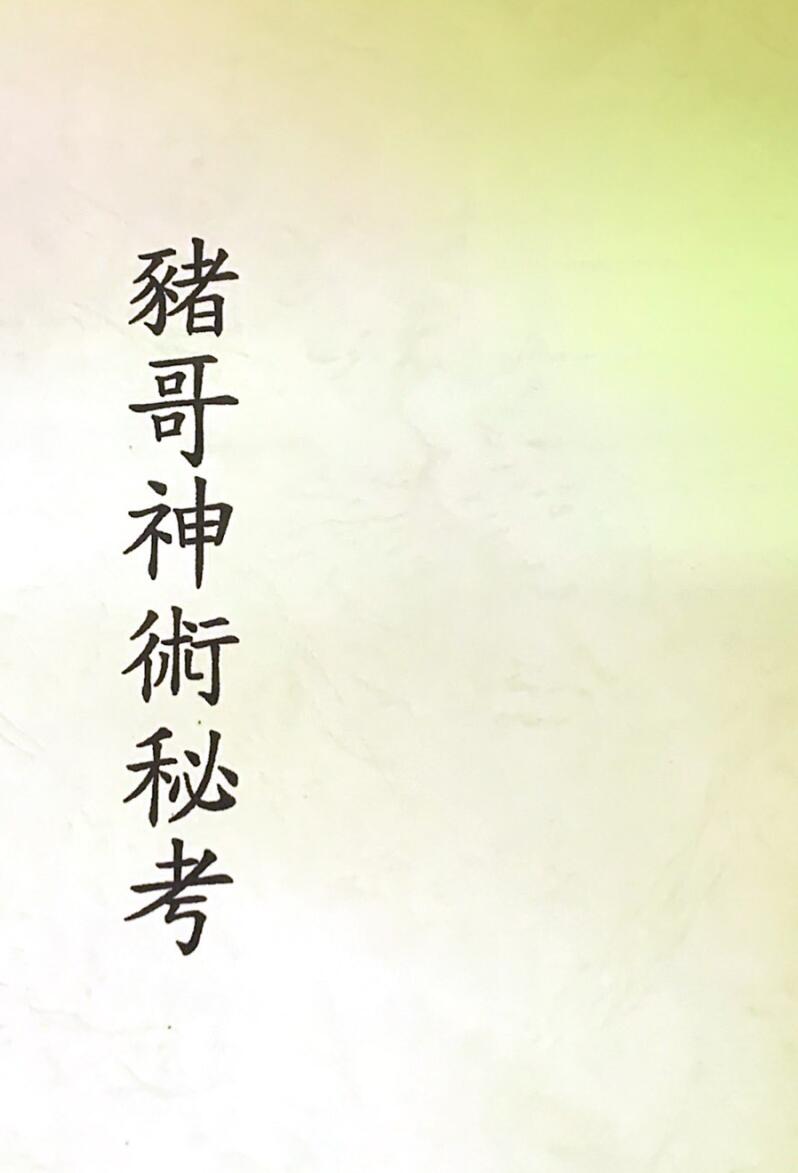 豬哥神術秘考